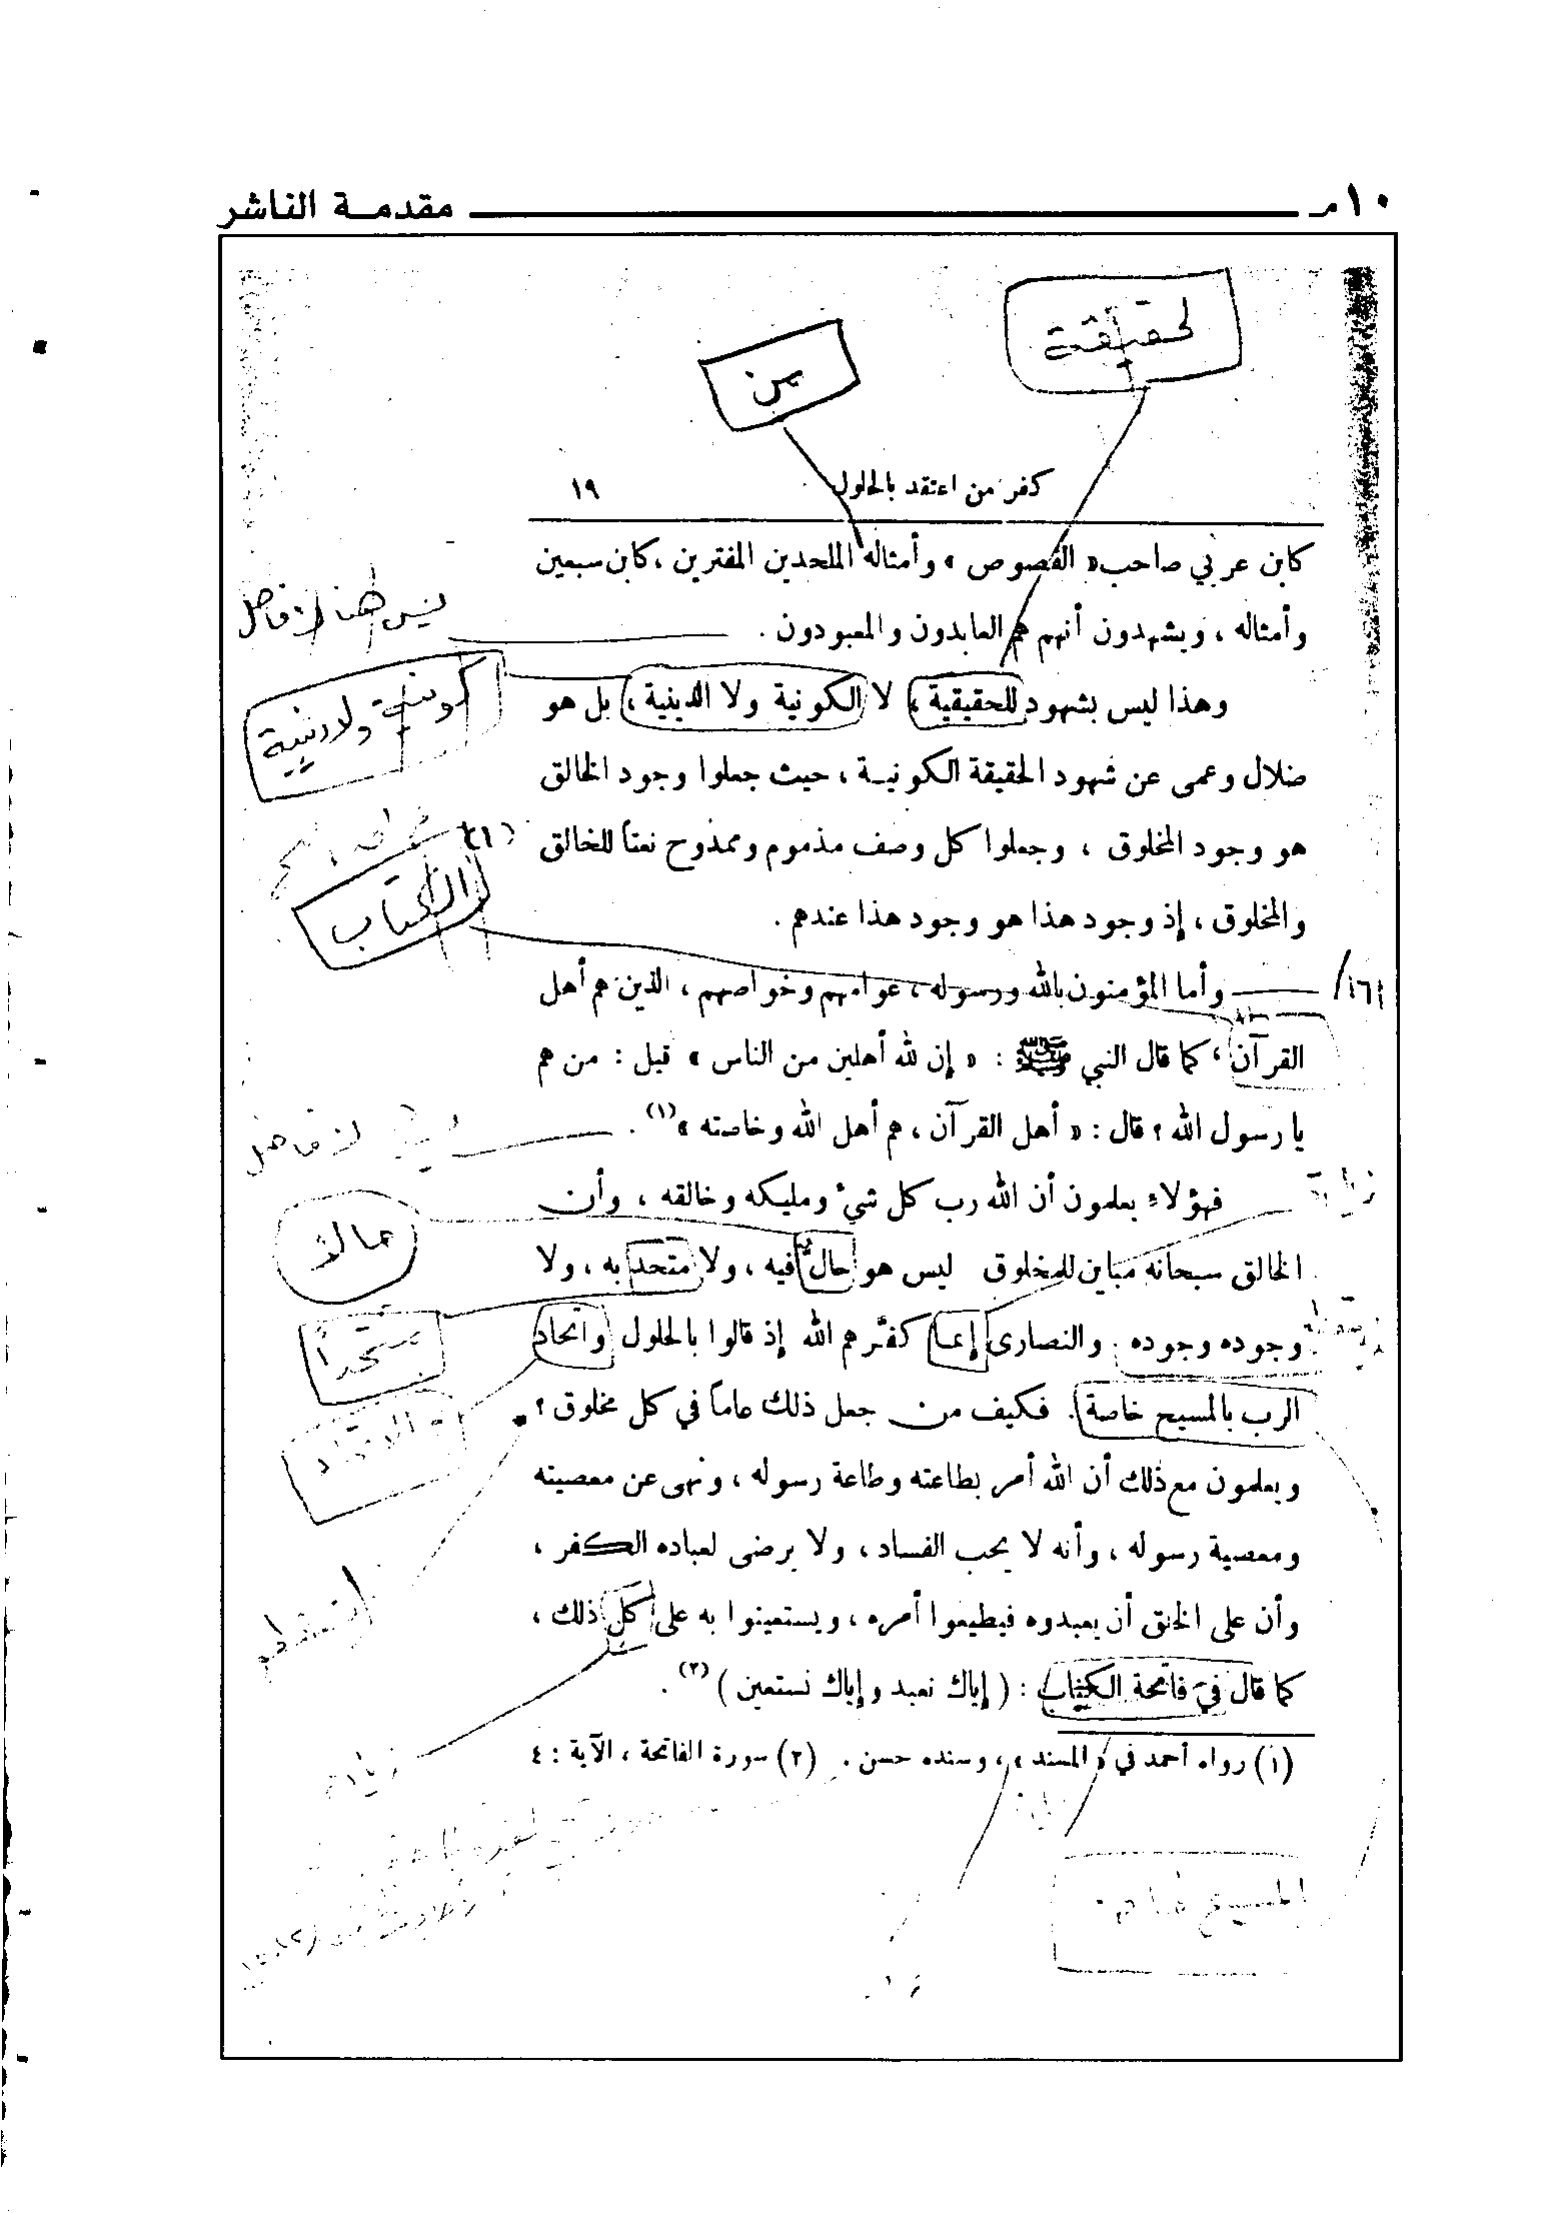 ١٠ مـ مقدمـة الناشر
لحقيقة
من
كفر من اعتقد بالحلول ١٩
كابن عربي صاحب « الفصوص » وأمثاله الملحدين المفترين ، كابن سبعين
ليس هنا فاصل
وأمثاله ، ويشهدون أنهم هم العابدون والمعبودون .
وهذا ليس بشهود للحقيقية ، لا الكونية ولا الدينية ، بل هو
كونية ولا دينية
ضلال وعمى عن شهود الحقيقة الكونيـة ، حيث جعلوا وجود الخالق
هو وجود المخلوق ، وجعلوا كل وصف مذموم وممدوح نعتاً للخالق
الكتاب
والمخلوق ، إذ وجود هذا هو وجود هذا عندهم .
وأما المؤمنون بالله ورسوله ، عوامهم وخواصهم ، الذين هم أهل
القرآن ، كما قال النبي ﷺ : « إن لله أهلين من الناس » قيل : من هم
يا رسول الله ؟ قال : « أهل القرآن ، هم أهل الله وخاصته » (١) .
فاصل
فهؤلاء يعلمون أن الله رب كل شيء ومليكه وخالقه ، وأن
زيادة
الخالق سبحانه مباين للمخلوق ليس هو حالٌّ فيه ، ولا متحد به ، ولا
وجوده وجوده . والنصارى إنما كفّرهم الله إذ قالوا بالحلول واتحاد
متحداً
الرب بالمسيح خاصة . فكيف من جعل ذلك عاماً في كل مخلوق ؟ .
ويعلمون مع ذلك أن الله أمر بطاعته وطاعة رسوله ، ونهى عن معصيته
ومعصية رسوله ، وأنه لا يحب الفساد ، ولا يرضى لعباده الكفر ،
وأن على الخلق أن يعبدوه فيطيعوا أمره ، ويستعينوا به على كل ذلك ،
كما قال في فاتحة الكتاب : ( إياك نعبد وإياك نستعين ) (٢) .
(١) رواه أحمد في « المسند » ، وسنده حسن . (٢) سورة الفاتحة ، الآية : ٤
زيادة